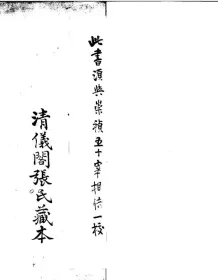 此書須與崇禎五十宰相傳一校
清儀閣張氏藏本